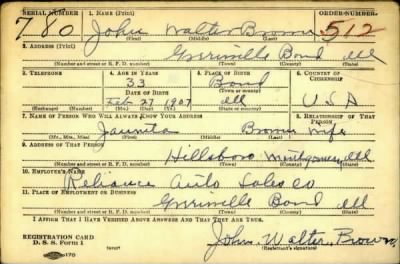 SERIAL NUMBER 1. NAME (Print) ORDER NUMBER
780 John Walter Brown 512
(First) (Middle) (Last)
2. ADDRESS (Print)
Greenville Bond Ill
(Number and street or R. F. D. number) (Town) (County) (State)
3. TELEPHONE 4. AGE IN YEARS 5. PLACE OF BIRTH 6. COUNTRY OF CITIZENSHIP
33 Bond
DATE OF BIRTH (Town or county)
Feb 27 1907 Ill U S A
(Exchange) (Number) (Mo.) (Day) (Yr.) (State or country)
7. NAME OF PERSON WHO WILL ALWAYS KNOW YOUR ADDRESS 8. RELATIONSHIP OF THAT PERSON
Jaunita Brown wife
(Mr., Mrs., Miss) (First) (Middle) (Last)
9. ADDRESS OF THAT PERSON
Hillsboro Montgomery Ill
(Number and street or R. F. D. number) (Town) (County) (State)
10. EMPLOYER'S NAME
Reliance Auto Sales Co
11. PLACE OF EMPLOYMENT OR BUSINESS
Greenville Bond Ill
(Number and street or R. F. D. number) (Town) (County) (State)
I AFFIRM THAT I HAVE VERIFIED ABOVE ANSWERS AND THAT THEY ARE TRUE.
REGISTRATION CARD
D. S. S. Form 1 John Walter Brown
(Registrant's signature)